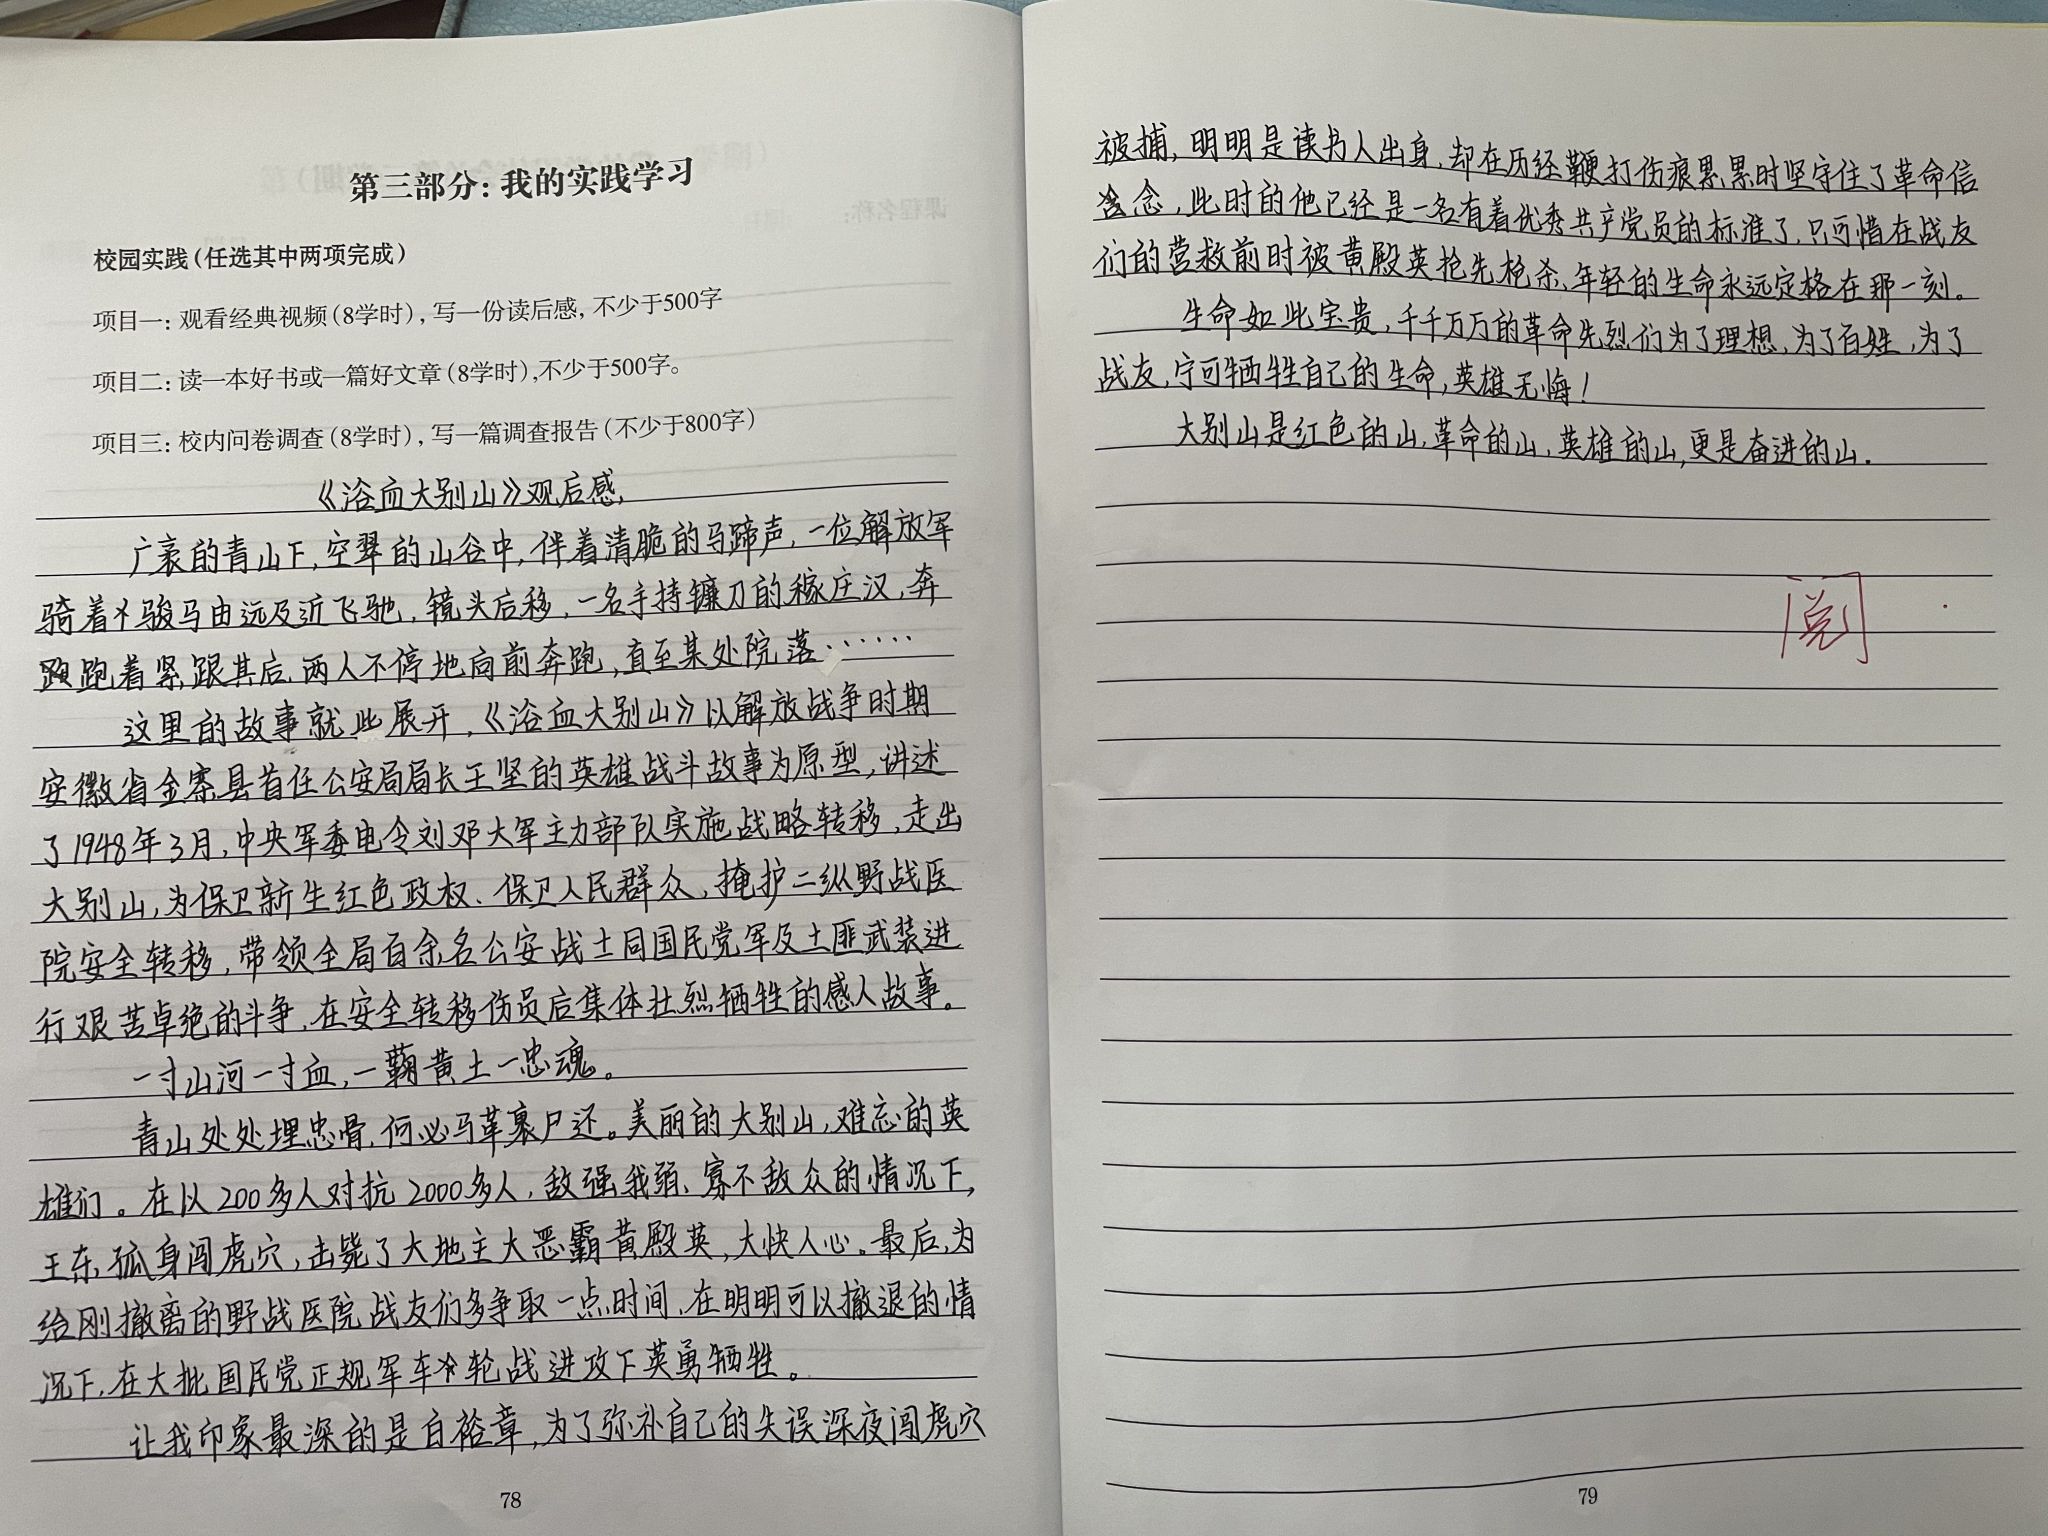 第三部分：我的实践学习
校园实践（任选其中两项完成）
项目一：观看经典视频（8学时），写一份读后感，不少于500字
项目二：读一本好书或一篇好文章（8学时），不少于500字。
项目三：校内问卷调查（8学时），写一篇调查报告（不少于800字）
《浴血大别山》观后感
广袤的青山下，空翠的山谷中，伴着清脆的马蹄声，一位解放军
骑着骏马由远及近飞驰，镜头后移，一名手持镰刀的稼庄汉，奔
跑着紧跟其后，两人不停地向前奔跑，直至某处院落……
这里的故事就此展开，《浴血大别山》以解放战争时期
安徽省金寨县首任公安局局长王坚的英雄战斗故事为原型，讲述
了1948年3月，中央军委电令刘邓大军主力部队实施战略转移，走出
大别山，为保卫新生红色政权、保卫人民群众，掩护二纵野战医
院安全转移，带领全局百余名公安战士同国民党军及土匪武装进
行艰苦卓绝的斗争，在安全转移伤员后集体壮烈牺牲的感人故事。
一寸山河一寸血，一鞠黄土一忠魂。
青山处处埋忠骨，何必马革裹尸还。美丽的大别山，难忘的英
雄们。在以200多人对抗2000多人，敌强我弱、寡不敌众的情况下，
王东孤身闯虎穴，击毙了大地主大恶霸黄殿英，大快人心。最后，为
给刚撤离的野战医院战友们多争取一点时间，在明明可以撤退的情
况下，在大批国民党正规军车轮战进攻下英勇牺牲。
让我印象最深的是白裕章，为了弥补自己的失误深夜闯虎穴
被捕，明明是读书人出身，却在历经鞭打伤痕累累时坚守住了革命信
念，此时的他已经是一名有着优秀共产党员的标准了，只可惜在战友
们的营救前时被黄殿英抢先枪杀，年轻的生命永远定格在那一刻。
生命如此宝贵，千千万万的革命先烈们为了理想，为了百姓，为了
战友，宁可牺牲自己的生命，英雄无悔！
大别山是红色的山，革命的山，英雄的山，更是奋进的山.
阅
78
79